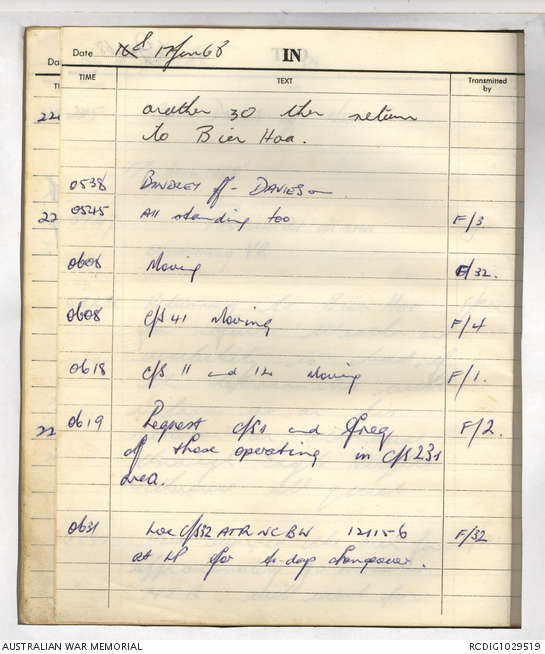 Date 17 Jun 68 IN
TIME TEXT Transmitted by
another 30 then return
to Bien Hoa.
0538 BINDLEY off - DAVIES on
0545 All standing too F/3
0608 Moving F/32.
0608 C/S 41 Moving F/4
0618 C/S 11 and 12 Moving F/1.
0619 Request C/Ss and freq F/2.
of those operating in C/S 23s
area.
0631 Loc C/S32 ATR NCBW 121156 F/32
at for change over.
AUSTRALIAN WAR MEMORIAL RCDIG1029519